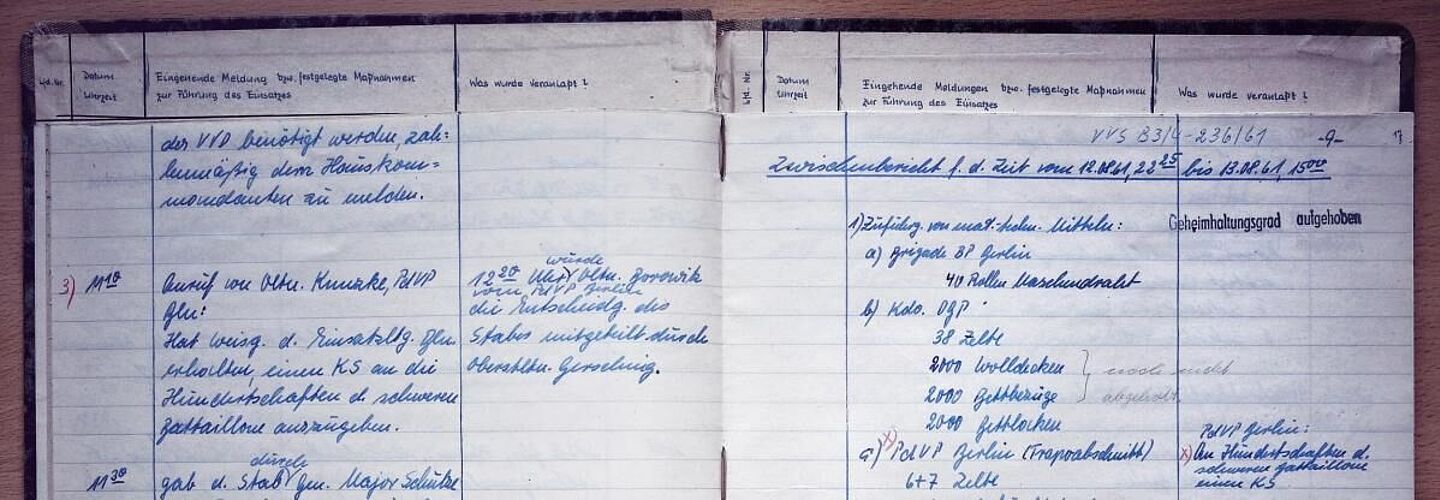 Lfd. Nr.
Datum
Uhrzeit
Eingehende Meldung bzw. festgelegte Maßnahmen
zur Führung des Einsatzes
Was wurde veranlaßt?
der VVD benötigt werden, zah=
lenmäßig dem Hauskom=
mandanten zu melden.
3) 11 10
Anruf von Oltn. Kunzke, PdVP
Bln:
Hat Weisg. d. Einsatzltg. Bln.
erhalten, einen KS an die
Hundertschaften d. schweren
Bataillone auszugeben.
wurde
12 20 Uhr Oltn. Borowik
vom PdVP Berlin
die Entscheidg. des
Stabes mitgeteilt durch
Oberstltn.
11 30
durch
gab d. Stab Gen. Major Schütze
Lfd. Nr.
Datum
Uhrzeit
Eingehende Meldungen bzw. festgelegte Maßnahmen
zur Führung des Einsatzes
Was wurde veranlaßt?
VVS B3/4-236/61 -9- 17
Zwischenbericht f. d. Zeit vom 12.08.61, 22 25 bis 13.08.61, 15 00
Geheimhaltungsgrad aufgehoben
1) Zuführg. von mat.-techn. Mitteln:
a) Brigade BP Berlin
40 Rollen Maschendraht
b) Kdo. DGP
38 Zelte
2000 Wolldecken
2000 Bettbezüge
noch nicht
abgeholt
2000 Bettlaken
a) x) PdVP Berlin (Trapoabschnitt)
6+7 Zelte
PdVP Berlin:
x) An Hundertschaften d.
schweren Bataillone
einen KS